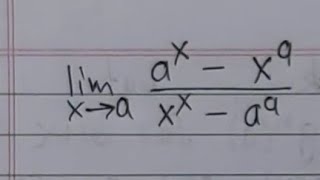 lim x→a (a^x − x^a) / (x^x − a^a)